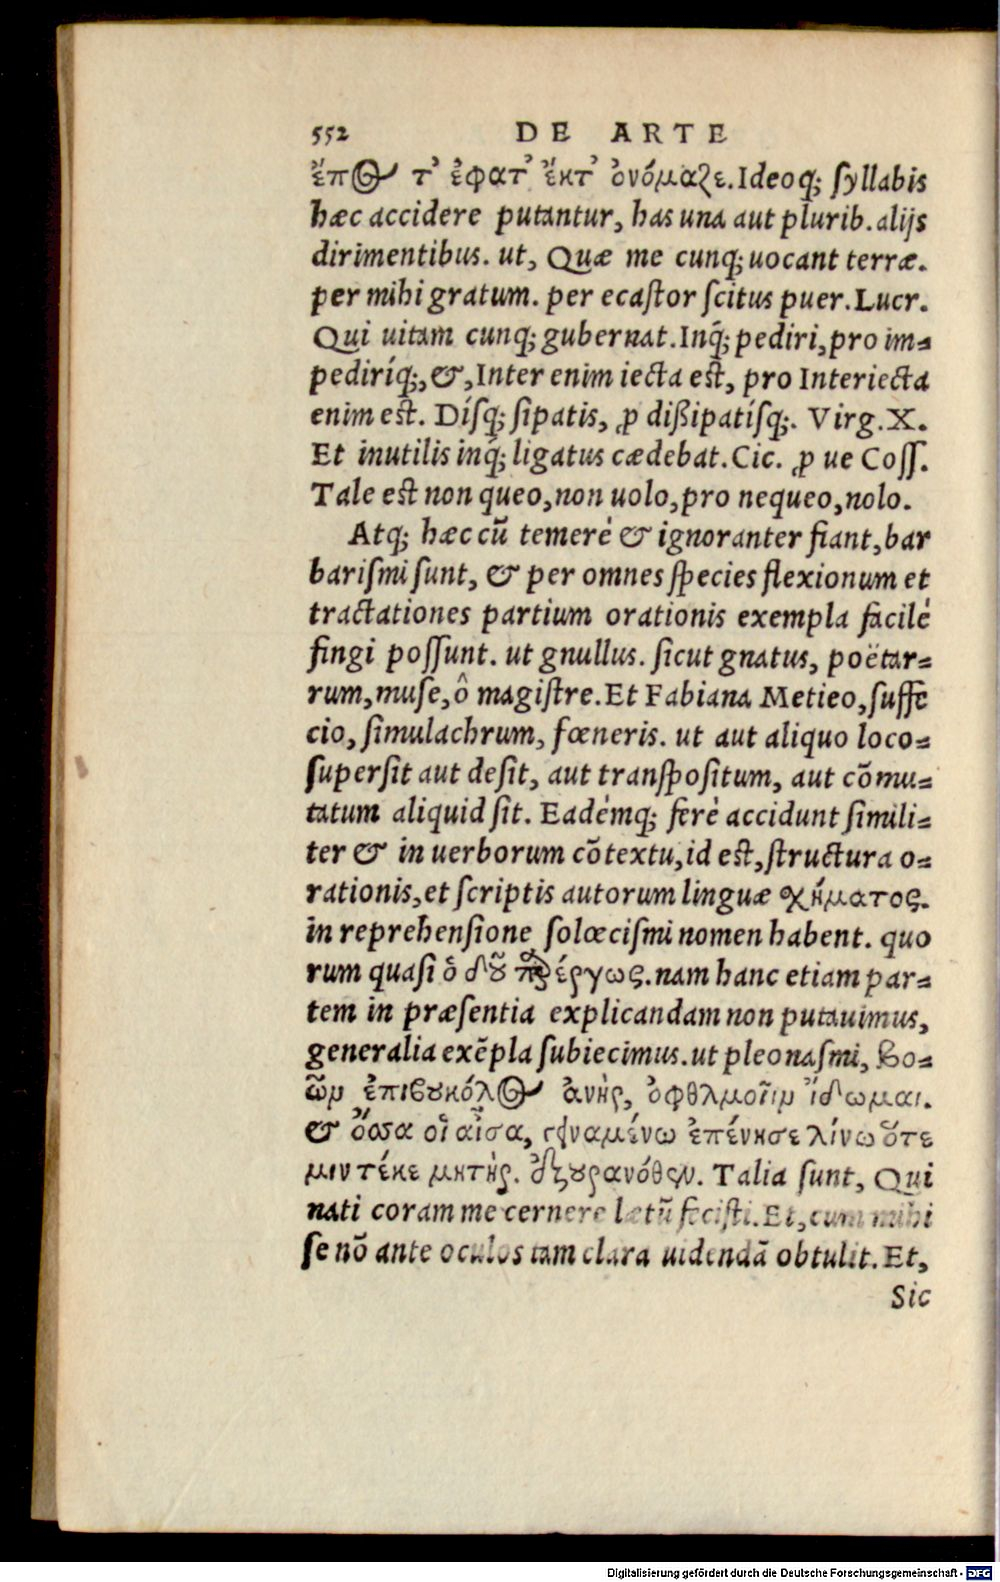 552 DE ARTE
ἔπος τ' ἐφατ' ἔκτ' ὀνόμαζε. Ideoq; syllabis
hæc accidere putantur, has una aut plurib. alijs
dirimentibus. ut, Quæ me cunq; uocant terræ.
per mihi gratum. per ecastor scitus puer. Lucr.
Qui uitam cunq; gubernat. Inq̃; pediri, pro im-
pediríq;, &, Inter enim iecta est, pro Interiecta
enim est. Dísq; sipatis, ꝓ dißipatísq;. Virg. X.
Et inutilis inq́; ligatus cædebat. Cic. ꝓ ue Coss.
Tale est non queo, non uolo, pro nequeo, nolo.
Atq; hæc cũ temerè & ignoranter fiant, bar
barismi sunt, & per omnes species flexionum et
tractationes partium orationis exempla facilè
fingi possunt. ut gnullus. sicut gnatus, poëtar-
rum, muse, ô magistre. Et Fabiana Metieo, suffe
cio, simulachrum, fœneris. ut aut aliquo loco-
supersit aut desit, aut transpositum, aut cõmu-
tatum aliquid sit. Eadémq; ferè accidunt simili-
ter & in uerborum cõtextu, id est, structura o-
rationis, et scriptis autorum linguæ χήματος.
in reprehensione solœcismi nomen habent. quo
rum quasi ὁ δ̓ οὖ παρέργως. nam hanc etiam par-
tem in præsentia explicandam non putauimus,
generalia exẽpla subiecimus. ut pleonasmi, βο-
ῶν ἐπιβουκόλος ἀνὴρ, ὀφθλμοῖιν ἴδωμαι.
& ὅσσα οἱ αἶσα, γεναμένω ἐπένησε λίνω ὅτε
μιν τέκε μητὴρ. ἐξ οὐρανόθεν. Talia sunt, Qui
nati coram me cernere lætũ fecisti. Et, cum mihi
se nõ ante oculos tam clara uidendã obtulit. Et,
Sic
Digitalisierung gefördert durch die Deutsche Forschungsgemeinschaft - DFG